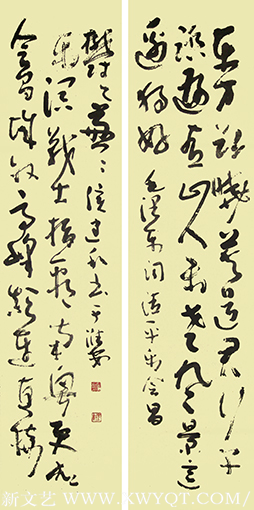 东方欲晓莫道君行早
踏遍青山人未老风景这
边独好 毛泽东词清平乐会昌
会昌城外高峰颠连直接
东溟战士指看南粤更加
郁郁葱葱 书于
新文艺 WWW.XWYQT.COM/